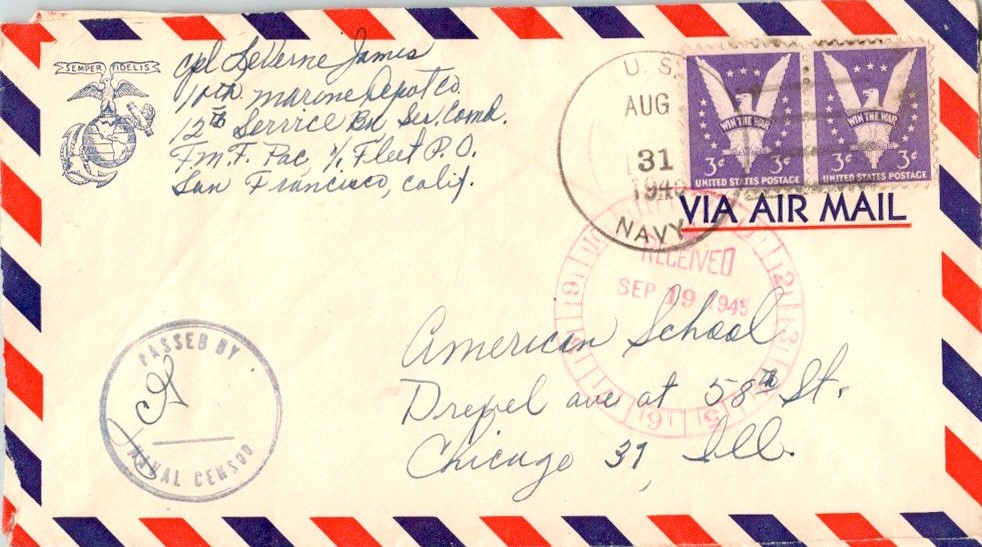 SEMPER FIDELIS
Cpl LeVerne James
10th marine Depot Co.
12th Service Bn Ser. Comd.
F.m.F. Pac, % Fleet P.O.
San Francisco, Calif.
U. S.
AUG
31
1945
NAVY
WIN THE WAR
3¢ 3¢
UNITED STATES POSTAGE
WIN THE WAR
3¢ 3¢
UNITED STATES POSTAGE
VIA AIR MAIL
RECEIVED
SEP 19 1945
2 3 5 6 9
American School
Drexel ave at 58th St.
Chicago 37, Ill.
PASSED BY
NAVAL CENSOR